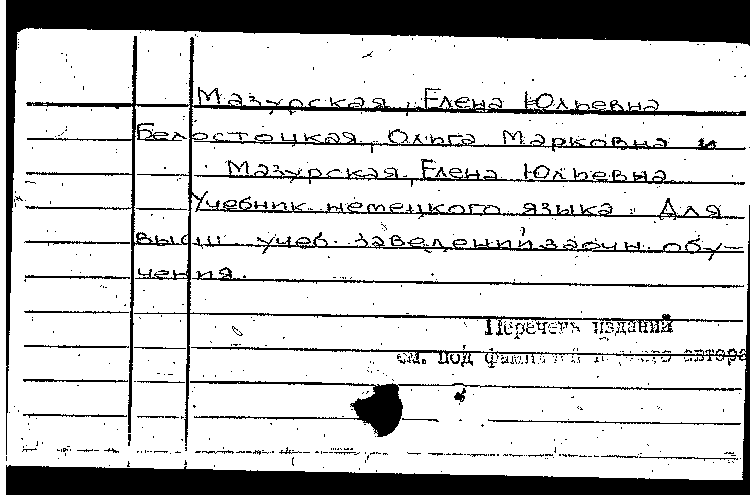 Мазурская, Елена Юльевна
Белостоцкая, Ольга Марковна и
Мазурская, Елена Юльевна
Учебник немецкого языка. Для
высш. учеб. заведений заочн. обу-
чения.
Перечень изданий
см. под фамилией автора